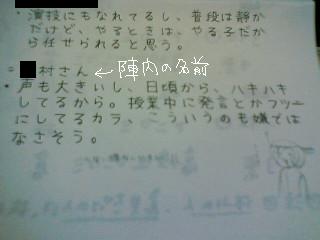 ・演技にもなれてるし、普段は静か
だけど、やるときは、やる子だか
ら任せられると思う。
村さん ←陣内の名前
・声も大きいし、日頃から、ハキハキ
してるから。授業中に発言とかフツー
にしてるカラ、こういうのも嫌では
なさそう。